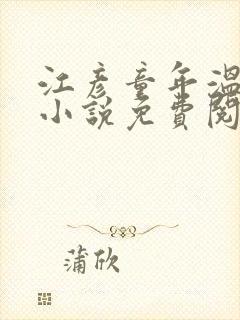 江彦童年温
小说免費阅
蒲欣